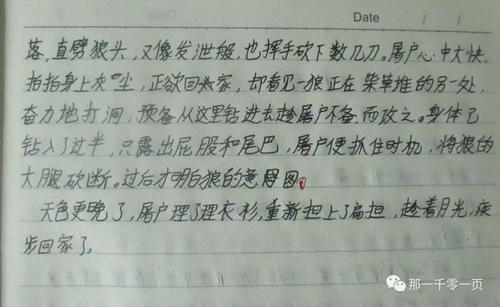 Date Date / /
落,直劈狼头,又像发泄般,也挥手砍下数几刀。屠户心中大快,
拍拍身上灰尘,正欲回家,却看见一狼正在柴草堆的另一处,
奋力地打洞,预备从这里钻进去趁屠户不备而攻之。身体已
钻入了过半,只露出屁股和尾巴,屠户便抓住时机,将狼的
大腿砍断。过后才明白狼的意图。
天色更晚了,屠户理了理衣衫,重新担上了扁担,趁着月光,疾
步回家了。
那一千零一页